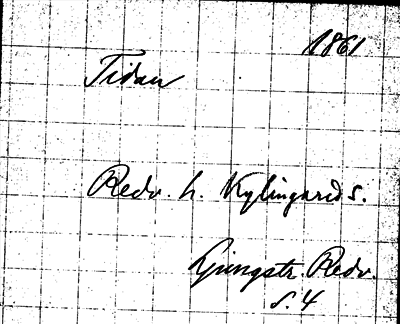 1861
Tidan
Redv. h. Kylingareds.
Ljungstr. Redv.
s. 4